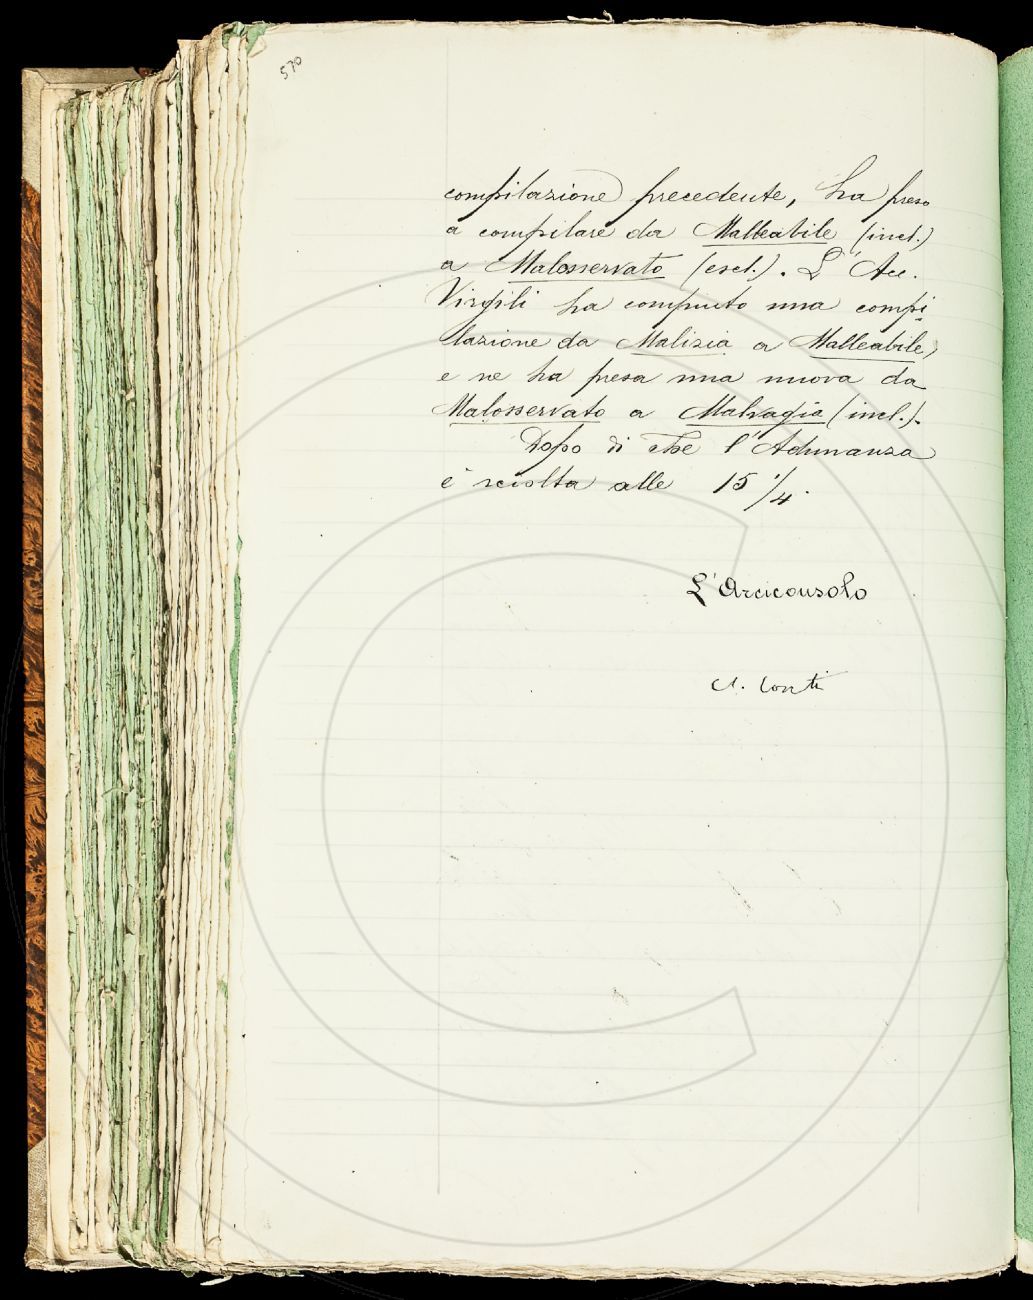 570
compilazione precedente, ha preso
a compilare da Malleabile (incl.)
a Malosservato (escl.). L'Acc.
Virgili ha compiuto una compi
lazione da Malizia a Malleabile,
e ne ha presa una nuova da
Malosservato a Malvagìa (incl.).
Dopo di che l'Adunanza
è sciolta alle 15 1/4.
L'Arciconsolo
A. Conti